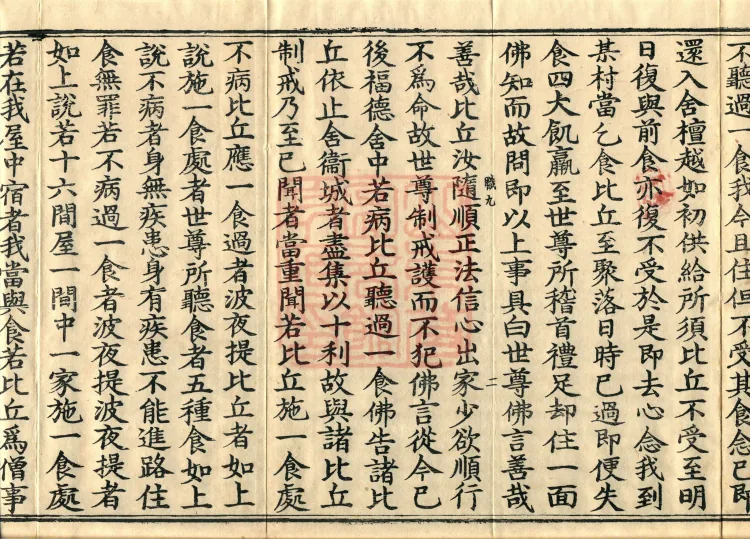 不聽過一食我今且住但不受其食念已即
還入舍檀越如初供給所須比丘不受至明
日復與前食亦復不受於是即去心念我到
某村當乞食比丘至聚落日時已過即便失
食四大飢羸至世尊所稽首禮足却住一面
佛知而故問即以上事具白世尊佛言善哉
職九
二
善哉比丘汝隨順正法信心出家少欲順行
不為命故世尊制戒護而不犯佛言從今已
後福德舍中若病比丘聽過一食佛告諸比
丘依止舍衞城者盡集以十利故與諸比丘
制戒乃至已聞者當重聞若比丘施一食處
不病比丘應一食過者波夜提比丘者如上
說施一食處者世尊所聽食者五種食如上
說不病者身無疾患身有疾患不能進路住
食無罪若不病過一食者波夜提波夜提者
如上說若十六間屋一間中一家施一食處
若在我屋中宿者我當與食若比丘為僧事